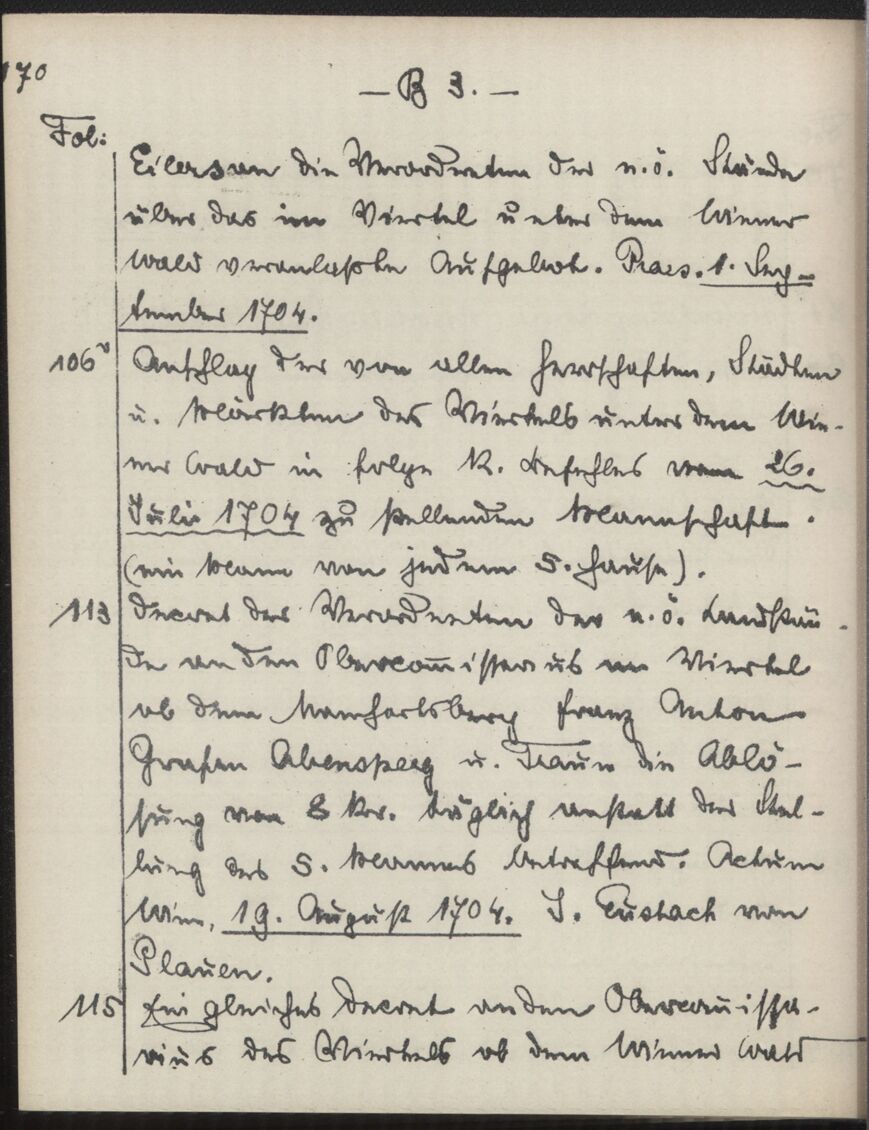 170
— B 3. —
Fol:
Eilers an die Verordneten der n.ö. Stände
über das im Viertel unter dem Wiener
Wald veranlaßte Aufgebot. Praes. 1. Sep-
tember 1704.
106v Anschlag der von allen Herrschaften, Städten
u. Märkten des Viertels unter dem Wie-
ner Wald in folge k. Befehles vom 26.
Juli 1704 zu stellenden Mannschaft.
(ein Mann von jedem 5. Hause).
113 Decret der Verordneten der n.ö. Landstän-
de an den Obercom̅issarius im Viertel
ob dem Manhartsberg Franz Anton
Grafen Abensperg u. Traun die Ablö-
sung von 8 kr. täglich anstatt der Stel-
lung des 5. Mannes betreffend. Actum
Wien, 19. August 1704. J. Eustach von
Plauen.
115 Ein gleiches Decret an den Obercom̅issa-
rius des Viertels ob dem Wiener Wald